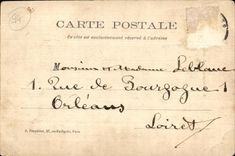 94
CARTE POSTALE
Ce côté est exclusivement réservé à l'adresse
Monsieur et Madame Leblanc
1. Rue de Bourgogne 1
Orléans
Loiret